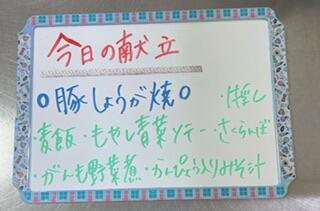 今日の献立
○豚しょうが焼○
・漬し
・麦飯・もやし青菜ソテー・さくらんぼ
・がんも野菜煮・かんぴょう入りみそ汁